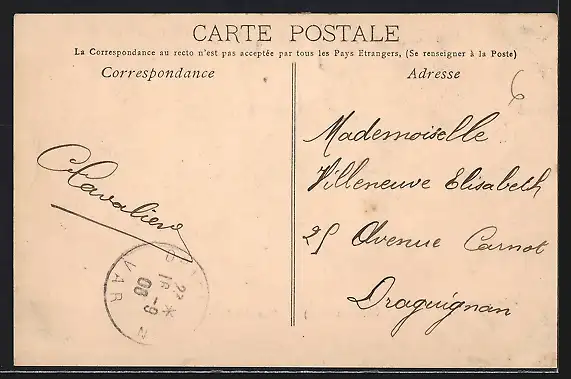 CARTE POSTALE
La Correspondance au recto n'est pas acceptée par tous les Pays Etrangers, (Se renseigner à la Poste)
Correspondance
Adresse
6
Mademoiselle
Villeneuve Elisabeth
25 Avenue Carnot
Draguignan
Chavalier
VAR
22
-9
08